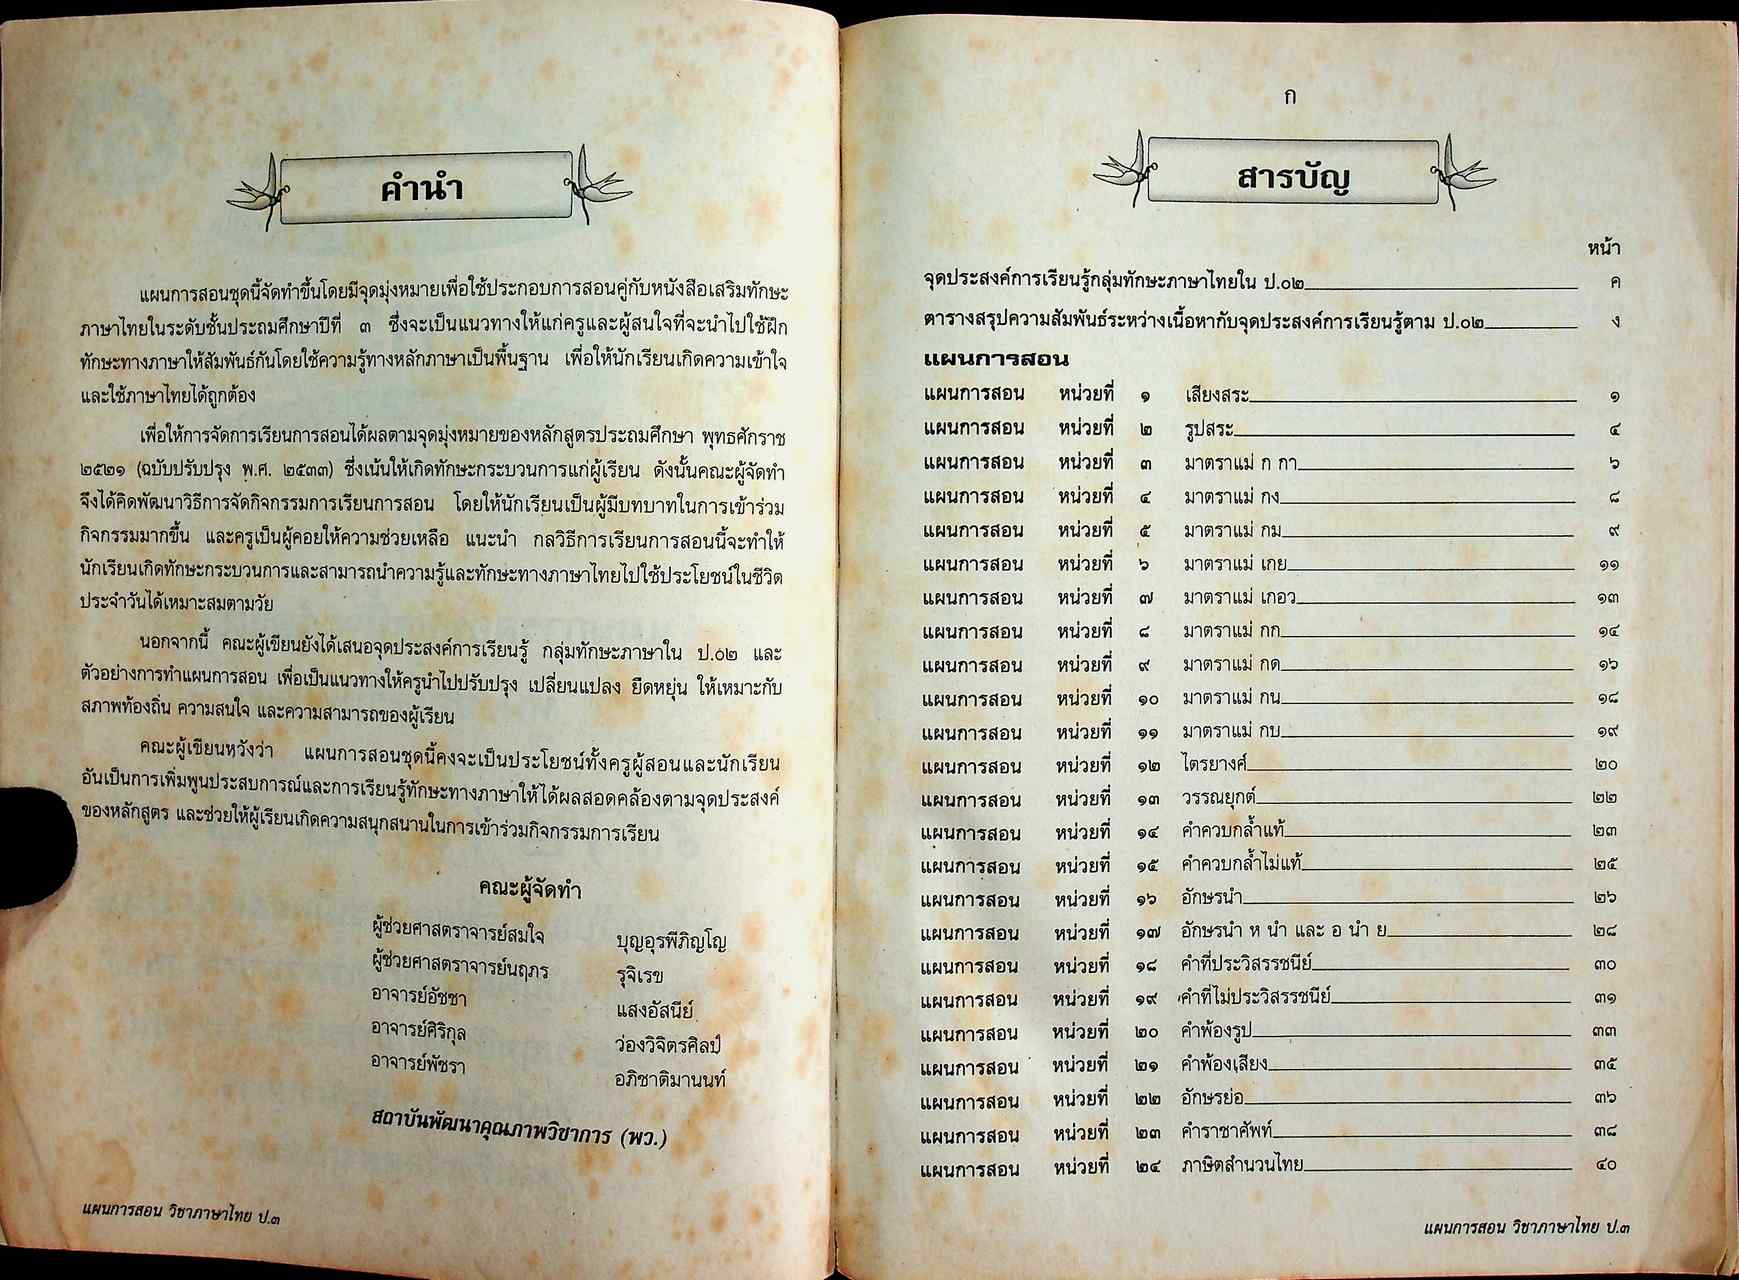 คำนำ
แผนการสอนชุดนี้จัดทำขึ้นโดยมีจุดมุ่งหมายเพื่อใช้ประกอบการสอนคู่กับหนังสือเสริมทักษะ
ภาษาไทยในระดับชั้นประถมศึกษาปีที่ ๓ ซึ่งจะเป็นแนวทางให้แก่ครูและผู้สนใจที่จะนำไปใช้ฝึก
ทักษะทางภาษาให้สัมพันธ์กันโดยใช้ความรู้ทางหลักภาษาเป็นพื้นฐาน เพื่อให้นักเรียนเกิดความเข้าใจ
และใช้ภาษาไทยได้ถูกต้อง
เพื่อให้การจัดการเรียนการสอนได้ผลตามจุดมุ่งหมายของหลักสูตรประถมศึกษา พุทธศักราช
๒๕๒๑ (ฉบับปรับปรุง พ.ศ. ๒๕๓๓) ซึ่งเน้นให้เกิดทักษะกระบวนการแก่ผู้เรียน ดังนั้นคณะผู้จัดทำ
จึงได้คิดพัฒนาวิธีการจัดกิจกรรมการเรียนการสอน โดยให้นักเรียนเป็นผู้มีบทบาทในการเข้าร่วม
กิจกรรมมากขึ้น และครูเป็นผู้คอยให้ความช่วยเหลือ แนะนำ กลวิธีการเรียนการสอนนี้จะทำให้
นักเรียนเกิดทักษะกระบวนการและสามารถนำความรู้และทักษะทางภาษาไทยไปใช้ประโยชน์ในชีวิต
ประจำวันได้เหมาะสมตามวัย
นอกจากนี้ คณะผู้เขียนยังได้เสนอจุดประสงค์การเรียนรู้ กลุ่มทักษะภาษาใน ป.๐๒ และ
ตัวอย่างการทำแผนการสอน เพื่อเป็นแนวทางให้ครูนำไปปรับปรุง เปลี่ยนแปลง ยืดหยุ่น ให้เหมาะกับ
สภาพท้องถิ่น ความสนใจ และความสามารถของผู้เรียน
คณะผู้เขียนหวังว่า แผนการสอนชุดนี้คงจะเป็นประโยชน์ทั้งครูผู้สอนและนักเรียน
อันเป็นการเพิ่มพูนประสบการณ์และการเรียนรู้ทักษะทางภาษาให้ได้ผลสอดคล้องตามจุดประสงค์
ของหลักสูตร และช่วยให้ผู้เรียนเกิดความสนุกสนานในการเข้าร่วมกิจกรรมการเรียน
คณะผู้จัดทำ
ผู้ช่วยศาสตราจารย์สมใจ บุญอุรพีภิญโญ
ผู้ช่วยศาสตราจารย์นฤภร รุจิเรข
อาจารย์อัชชา แสงอัสนีย์
อาจารย์ศิริกุล ว่องวิจิตรศิลป์
อาจารย์พัชรา อภิชาติมานนท์
สถาบันพัฒนาคุณภาพวิชาการ (พว.)
แผนการสอน วิชาภาษาไทย ป.๓
ก
สารบัญ
หน้า
จุดประสงค์การเรียนรู้กลุ่มทักษะภาษาไทยใน ป.๐๒ ค
ตารางสรุปความสัมพันธ์ระหว่างเนื้อหากับจุดประสงค์การเรียนรู้ตาม ป.๐๒ ง
แผนการสอน
แผนการสอน หน่วยที่ ๑ เสียงสระ ๑
แผนการสอน หน่วยที่ ๒ รูปสระ ๔
แผนการสอน หน่วยที่ ๓ มาตราแม่ ก กา ๖
แผนการสอน หน่วยที่ ๔ มาตราแม่ กง ๘
แผนการสอน หน่วยที่ ๕ มาตราแม่ กม ๙
แผนการสอน หน่วยที่ ๖ มาตราแม่ เกย ๑๑
แผนการสอน หน่วยที่ ๗ มาตราแม่ เกอว ๑๓
แผนการสอน หน่วยที่ ๘ มาตราแม่ กก ๑๔
แผนการสอน หน่วยที่ ๙ มาตราแม่ กด ๑๖
แผนการสอน หน่วยที่ ๑๐ มาตราแม่ กน ๑๘
แผนการสอน หน่วยที่ ๑๑ มาตราแม่ กบ ๑๙
แผนการสอน หน่วยที่ ๑๒ ไตรยางศ์ ๒๐
แผนการสอน หน่วยที่ ๑๓ วรรณยุกต์ ๒๒
แผนการสอน หน่วยที่ ๑๔ คำควบกล้ำแท้ ๒๓
แผนการสอน หน่วยที่ ๑๕ คำควบกล้ำไม่แท้ ๒๕
แผนการสอน หน่วยที่ ๑๖ อักษรนำ ๒๖
แผนการสอน หน่วยที่ ๑๗ อักษรนำ ห นำ และ อ นำ ย ๒๘
แผนการสอน หน่วยที่ ๑๘ คำที่ประวิสรรชนีย์ ๓๐
แผนการสอน หน่วยที่ ๑๙ คำที่ไม่ประวิสรรชนีย์ ๓๑
แผนการสอน หน่วยที่ ๒๐ คำพ้องรูป ๓๓
แผนการสอน หน่วยที่ ๒๑ คำพ้องเสียง ๓๕
แผนการสอน หน่วยที่ ๒๒ อักษรย่อ ๓๖
แผนการสอน หน่วยที่ ๒๓ คำราชาศัพท์ ๓๘
แผนการสอน หน่วยที่ ๒๔ ภาษิตสำนวนไทย ๔๐
แผนการสอน วิชาภาษาไทย ป.๓